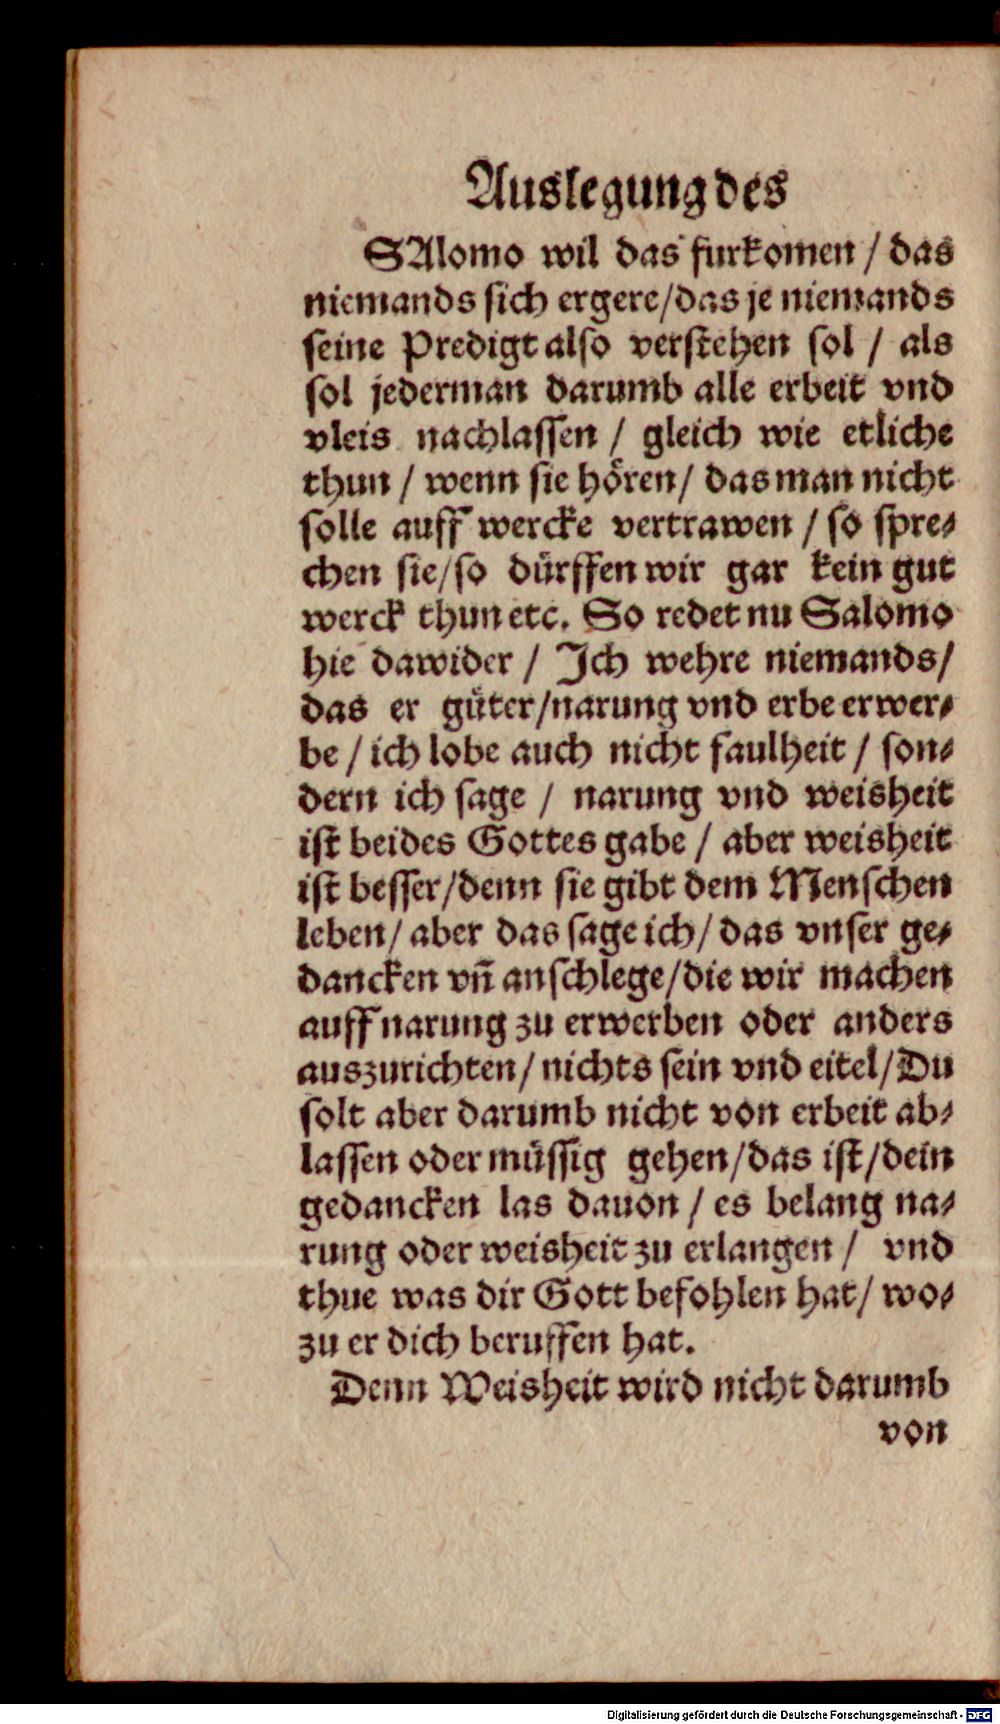 Auslegung des
SAlomo wil das furkomen / das
niemands sich ergere/das je niemands
seine Predigt also verstehen sol / als
sol jederman darumb alle erbeit vnd
vleis nachlassen / gleich wie etliche
thun / wenn sie hören/ das man nicht
solle auff wercke vertrawen / so spre⸗
chen sie/so dürffen wir gar kein gut
werck thun etc. So redet nu Salomo
hie dawider / Ich wehre niemands/
das er güter/narung vnd erbe erwer⸗
be / ich lobe auch nicht faulheit / son⸗
dern ich sage / narung vnd weisheit
ist beides Gottes gabe / aber weisheit
ist besser/denn sie gibt dem Menschen
leben/ aber das sage ich/ das vnser ge⸗
dancken vñ anschlege/die wir machen
auff narung zu erwerben oder anders
auszurichten/ nichts sein vnd eitel/Du
solt aber darumb nicht von erbeit ab⸗
lassen oder müssig gehen/das ist/dein
gedancken las dauon / es belang na⸗
rung oder weisheit zu erlangen / vnd
thue was dir Gott befohlen hat/ wo⸗
zu er dich beruffen hat.
Denn Weisheit wird nicht darumb
von
Digitalisierung gefördert durch die Deutsche Forschungsgemeinschaft - DFG